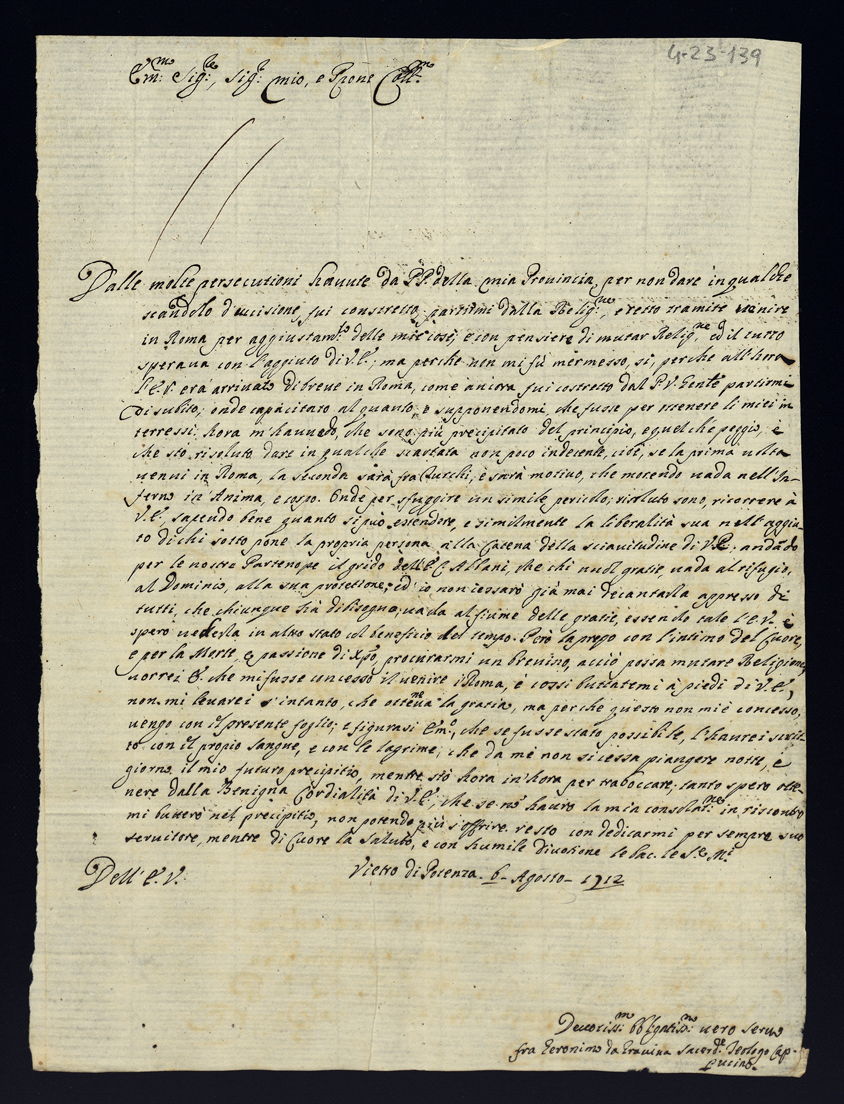 4-23-139
Em:mo Sig:re, Sig:r mio, e Prone Coll:mo
Dalle molte persecutioni havute da PP. della mia Provincia, per non dare in qualche
scandolo d'uccisione, fui constretto partirmi dalla Relig:ne, e retto tramite venire
in Roma per aggiustam:to delle mie cose, e con pensiere di mutar Relig:ne, ed il tutto
sperava con l'aggiuto di V.E.; ma perche non mi fù permesso, sì, perche all'hora
l'E.V. era arrivato di breve in Roma, come ancora fui costretto dal P.V. Gen:le partirmi
di subito; onde capacitato al quanto, e supponendomi, che fusse per ottenere li miei in
teressi; hora m'havvedo, che sono più precipitato del principio, e quel che peggio, è
che stò risoluto dare in qual che scartata non poco indecente, cioè, se la prima volta
venni in Roma, la seconda sarà fra Turchi, e sarà motivo, che morendo vada nell'In-
ferno in Anima, e corpo. Onde per sfuggire un simile pericolo; risoluto sono, ricorrere à
V.E., sapendo bene quanto si può estendere, e similmente la liberalità sua nell'aggiu-
to di chi sotto pone la propria persona alla Catena della sciavitudine di V.E. andādo
per le nostre Partenope il grido dell'E. Albani, che chi vuol gratie, vada al rifugio,
al Dominio, alla sua protettione; ed io non cessarò già mai decantarla appresso di
tutti, che chiunque hà di bisogno, vada al fiume delle gratie, essendo tale l'E.V. e
spero vederla in altro stato col beneficio del tempo. Però la prego con l'intimo del Cuore,
e per la Morte, e passione di Xp̄o, procurarmi un Brevino, acciò possa mutare Religione,
vorrei E. che mi fusse concesso il venire ī Roma, e cossi buttatemi à piedi di V.E.,
non mi levarei s'intanto, che ottenne la gratia, ma perche questo non mi è concesso,
vengo con il presente foglio; e figurasi Em:o, che se fusse stato possibile, l'haurei scrit-
to con il propio sangue, e con le lagrime; che da me non si cessa piangere notte, e
giorno il mio futuro precipitio, mentre stò hora in'hora per traboccare; tanto spero otte-
nere dalla Benigna Cordialità di V.E.; che se nō haurò la mia consolat:ne, in riscontro
mi butterò nel precipitio, non potendo più s'offrire. resto con dedicarmi per sempre suo
servitore, mentre di Cuore la saluto, e con humile divotione le bac. le S:e M:i
Dell'E.V. Vietro di Potenza. 6. Agosto- 1712
Devotiss:mo Obligatiss:mo vero servo
fra Geronimo da Gravina Sacerd:te Teologo Cap-
puccino.